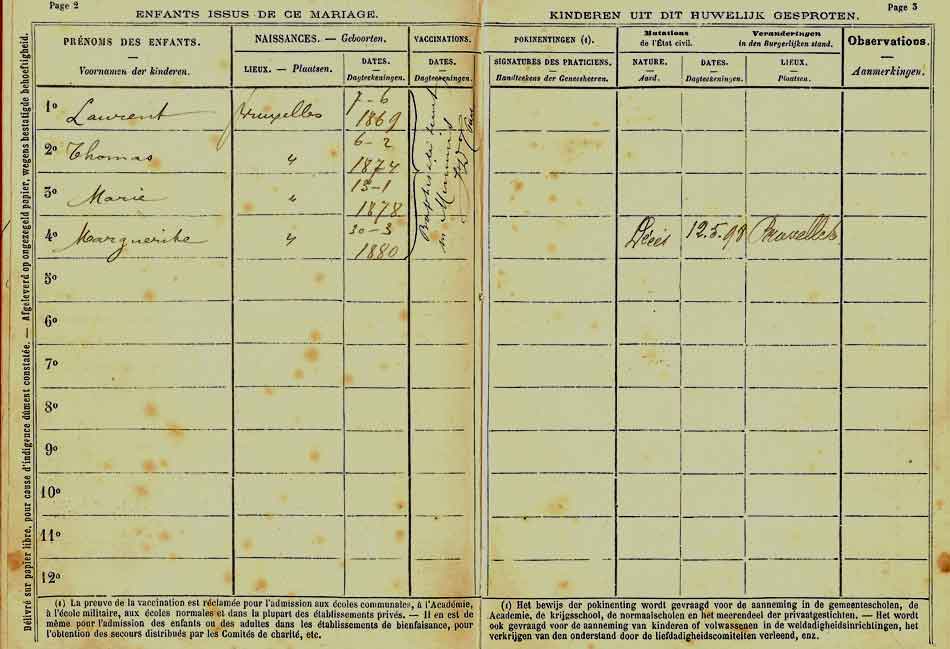 Page 2
Page 3
ENFANTS ISSUS DE CE MARIAGE.
KINDEREN UIT DIT HUWELIJK GESPROTEN.
PRÉNOMS DES ENFANTS.
—
Voornamen der kinderen.
NAISSANCES. — Geboorten.
LIEUX. — Plaatsen.
DATES.
—
Dagteekeningen.
VACCINATIONS.
DATES.
—
Dagteekeningen.
POKINENTINGEN (1).
SIGNATURES DES PRATICIENS.
Handteekens der Geneesheeren.
Mutations
de l'État civil.
Veranderingen
in den Burgerlijken stand.
NATURE.
—
Aard.
DATES.
—
Dagteekeningen.
LIEUX.
—
Plaatsen.
Observations.
—
Aanmerkingen.
1º Laurent Bruxelles 7-6 1869
2º Thomas " 6-2 1874
3º Marie " 13-1 1878
4º Marguerite " 30-3 1880 Décès 12.5.98 Bruxelles
5º
6º
7º
8º
9º
10º
11º
12º
Délivré sur papier libre, pour cause d'indigence dûment constatée. — Afgeleverd op ongezegeld papier, wegens bestatigde behoeftigheid.
(1) La preuve de la vaccination est réclamée pour l'admission aux écoles communales, à l'Académie,
à l'école militaire, aux écoles normales et dans la plupart des établissements privés. — Il en est de
même pour l'admission des enfants ou des adultes dans les établissements de bienfaisance, pour
l'obtention des secours distribués par les Comités de charité, etc.
(1) Het bewijs der pokinenting wordt gevraagd voor de aanneming in de gemeentescholen, de
Academie, de krijgsschool, de normaalscholen en het meerendeel der privaatgestichten. — Het wordt
ook gevraagd voor de aanneming van kinderen of volwassenen in de weldadigheidsinrichtingen, het
verkrijgen van den onderstand door de liefdadigheidscomiteiten verleend, enz.